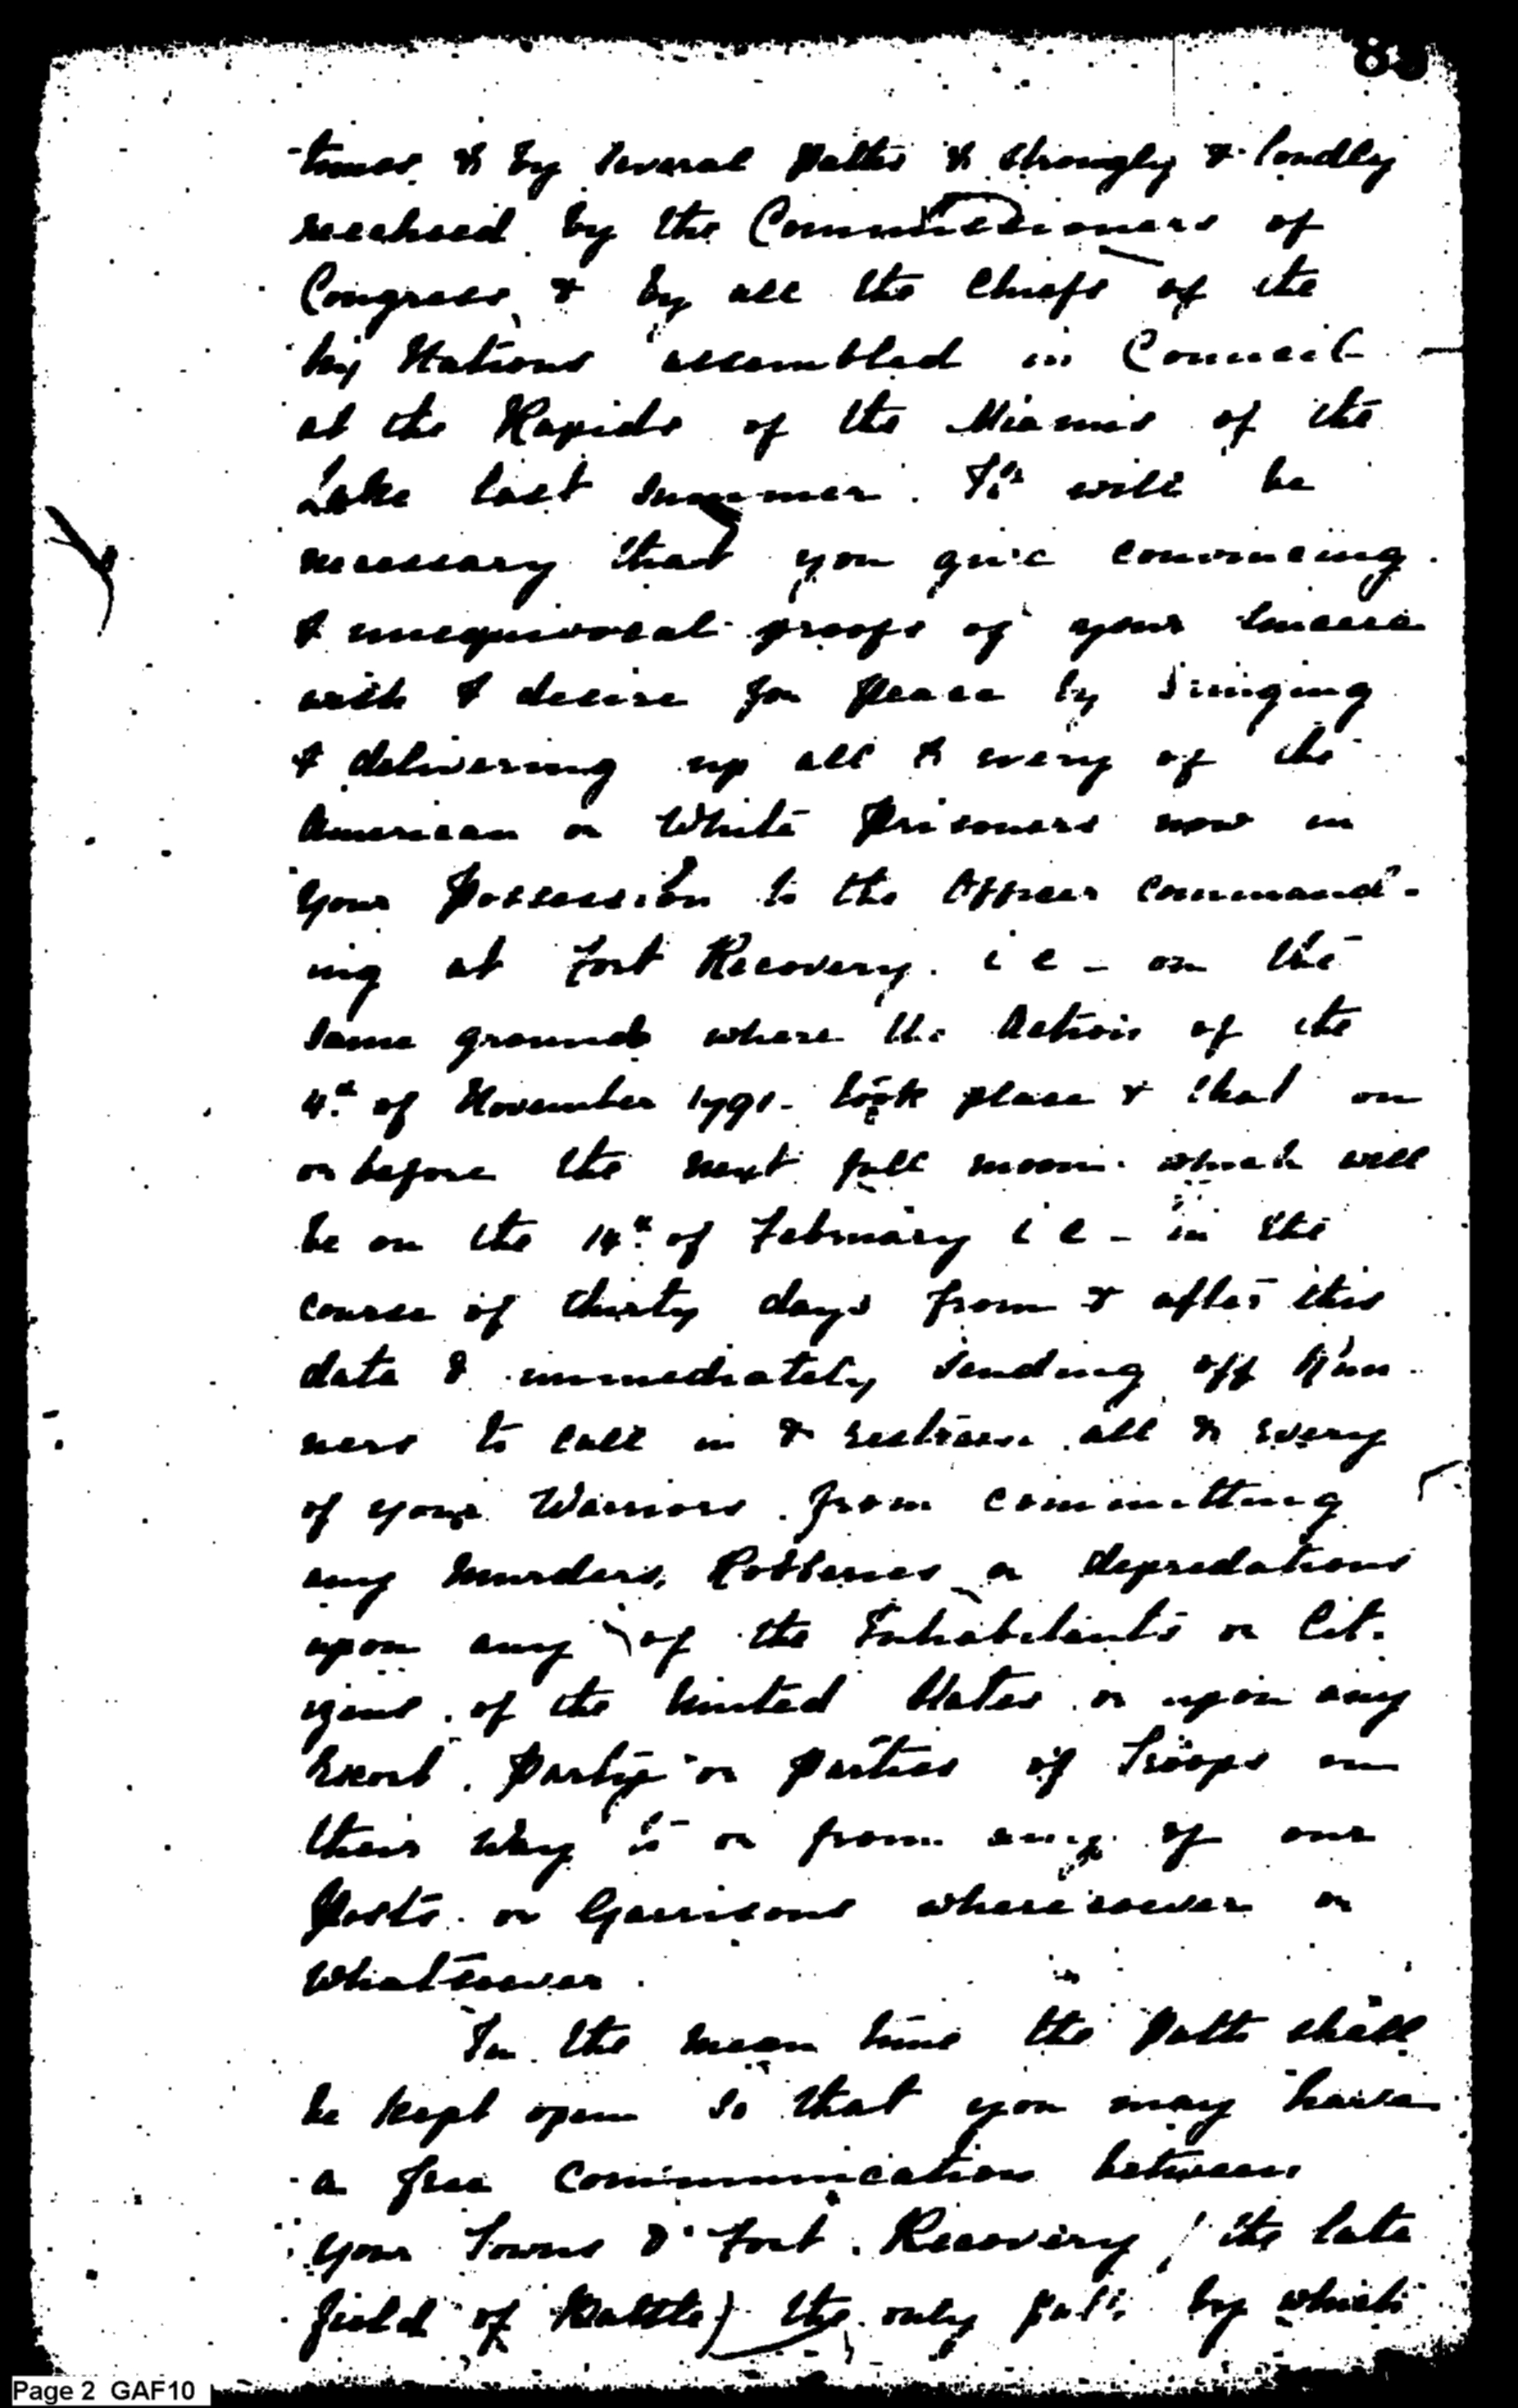 83
-times & by several paths & strongly & loudly
reechoed by the Commissioners of
Congress, & by all the Chiefs of the
Six Nations assembled in Council
at the Rapids of the Miamis of the
Lake last Summer. It will be
necessary that you give convincing
& unequivocal proofs of your sincere
wish & desire for Peace by bringing
& delivering up all & every of the
American or White Prisoners now in
Your Possession to the Officer command-
ing at Fort Recovery. i e - on the
same ground where the Action of the
4th of November 1791 - took place & that on
or before the next full moon which will
be on the 14th of February i e - in the
course of thirty days from & after this
date & immediately sending off Run-
ners to call in & restrain all & every
of your Warriors from committing
any Murders, Robberies or depredations
upon any of the Inhabitants or Cit-
izens of the United States or upon any
Escort, Party or parties of Troops on
their way to or from any of our
Posts or Garrisons wheresoever or
Whatsoever.
In the mean time the Path shall
be kept open so that you may have
a free Communication between
your Towns & Fort Recovery (the late
field of Battle) the only path by which
Page 2 GAF10